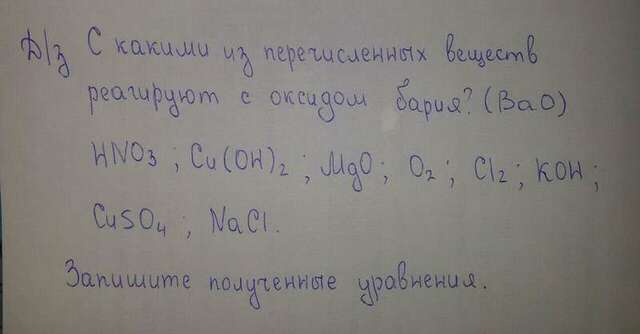 Д/з С какими из перечисленных веществ
реагируют с оксидом бария? (BaO)
HNO3 ; Cu(OH)2 ; MgO ; O2 ; Cl2 ; KOH ;
CuSO4 ; NaCl.
Запишите полученные уравнения.